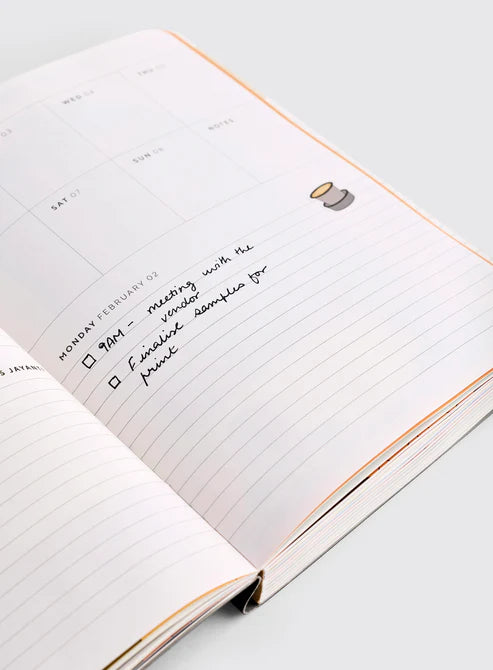 03
WED 04
THU 05
SAT 07
SUN 08
NOTES
MONDAY FEBRUARY 02
9AM - meeting with the
vendor
Finalise samples for
print
JAYANTI